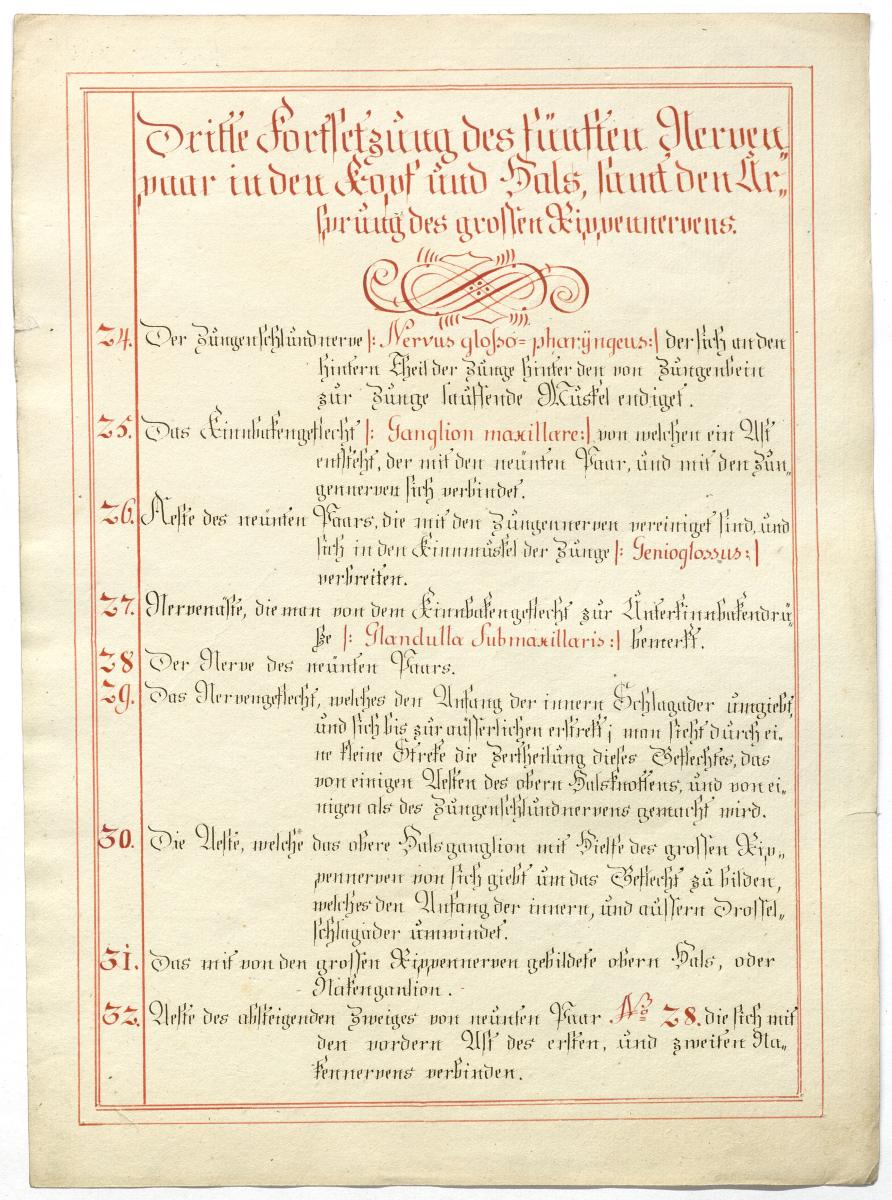 Dritte Fortsetzung des fünften Nerven
paar in den Kopf und Hals, samt den Ur„
sprung des grossen Rippennervens.
24. Der Zungenschlundnerve |: Nervus gloßo= pharÿngeus:| der sich an den
hintern Theil der Zunge hinter den von Zungenbein
zur Zunge lauffende Muskel endiget.
25. Das Kinnbakengeflecht |: Ganglion maxillare:| von welchen ein Ast
entsteht, der mit den neünten Paar, und mit den Zun„
gennerven sich verbindet.
26. Aeste des neünten Paars, die mit den Zungennerven vereiniget sind, und
sich in den Kinnmuskel der Zunge |: Genioglossus:|
verbreiten.
27. Nervenäste, die man von dem Kinnbakengeflecht zur Unterkinnbakendrü„
ße |: Glandulla Submaxillaris:| bemerkt.
28 Der Nerve des neünten Paars.
29. Das Nervengeflecht, welches den Anfang der innern Schlagader umgiebt,
und sich bis zur ausserlichen erstrekt; man sieht durch ei„
ne kleine Streke die Zertheilung dieses Geflechtes, das
von einigen Aesten des obern Halsknottens, und von ei„
nigen als des Zungenschlundnervens gemacht wird.
30. Die Aeste, welche das obere Halsganglion mit Hielfe des grossen Rip„
pennerven von sich giebt um das Geflecht zu bilden,
welches den Anfang der innern, und aussern Drossel„
schlagader umwindet.
31. Das mit von den grossen Rippennerven gebildete obern Hals, oder
Nakenganlion.
32. Aeste des absteigenden Zweiges von neünten Paar Nº 28. die sich mit
den vordern Ast des ersten, und zweiten Na„
kennervens verbinden.